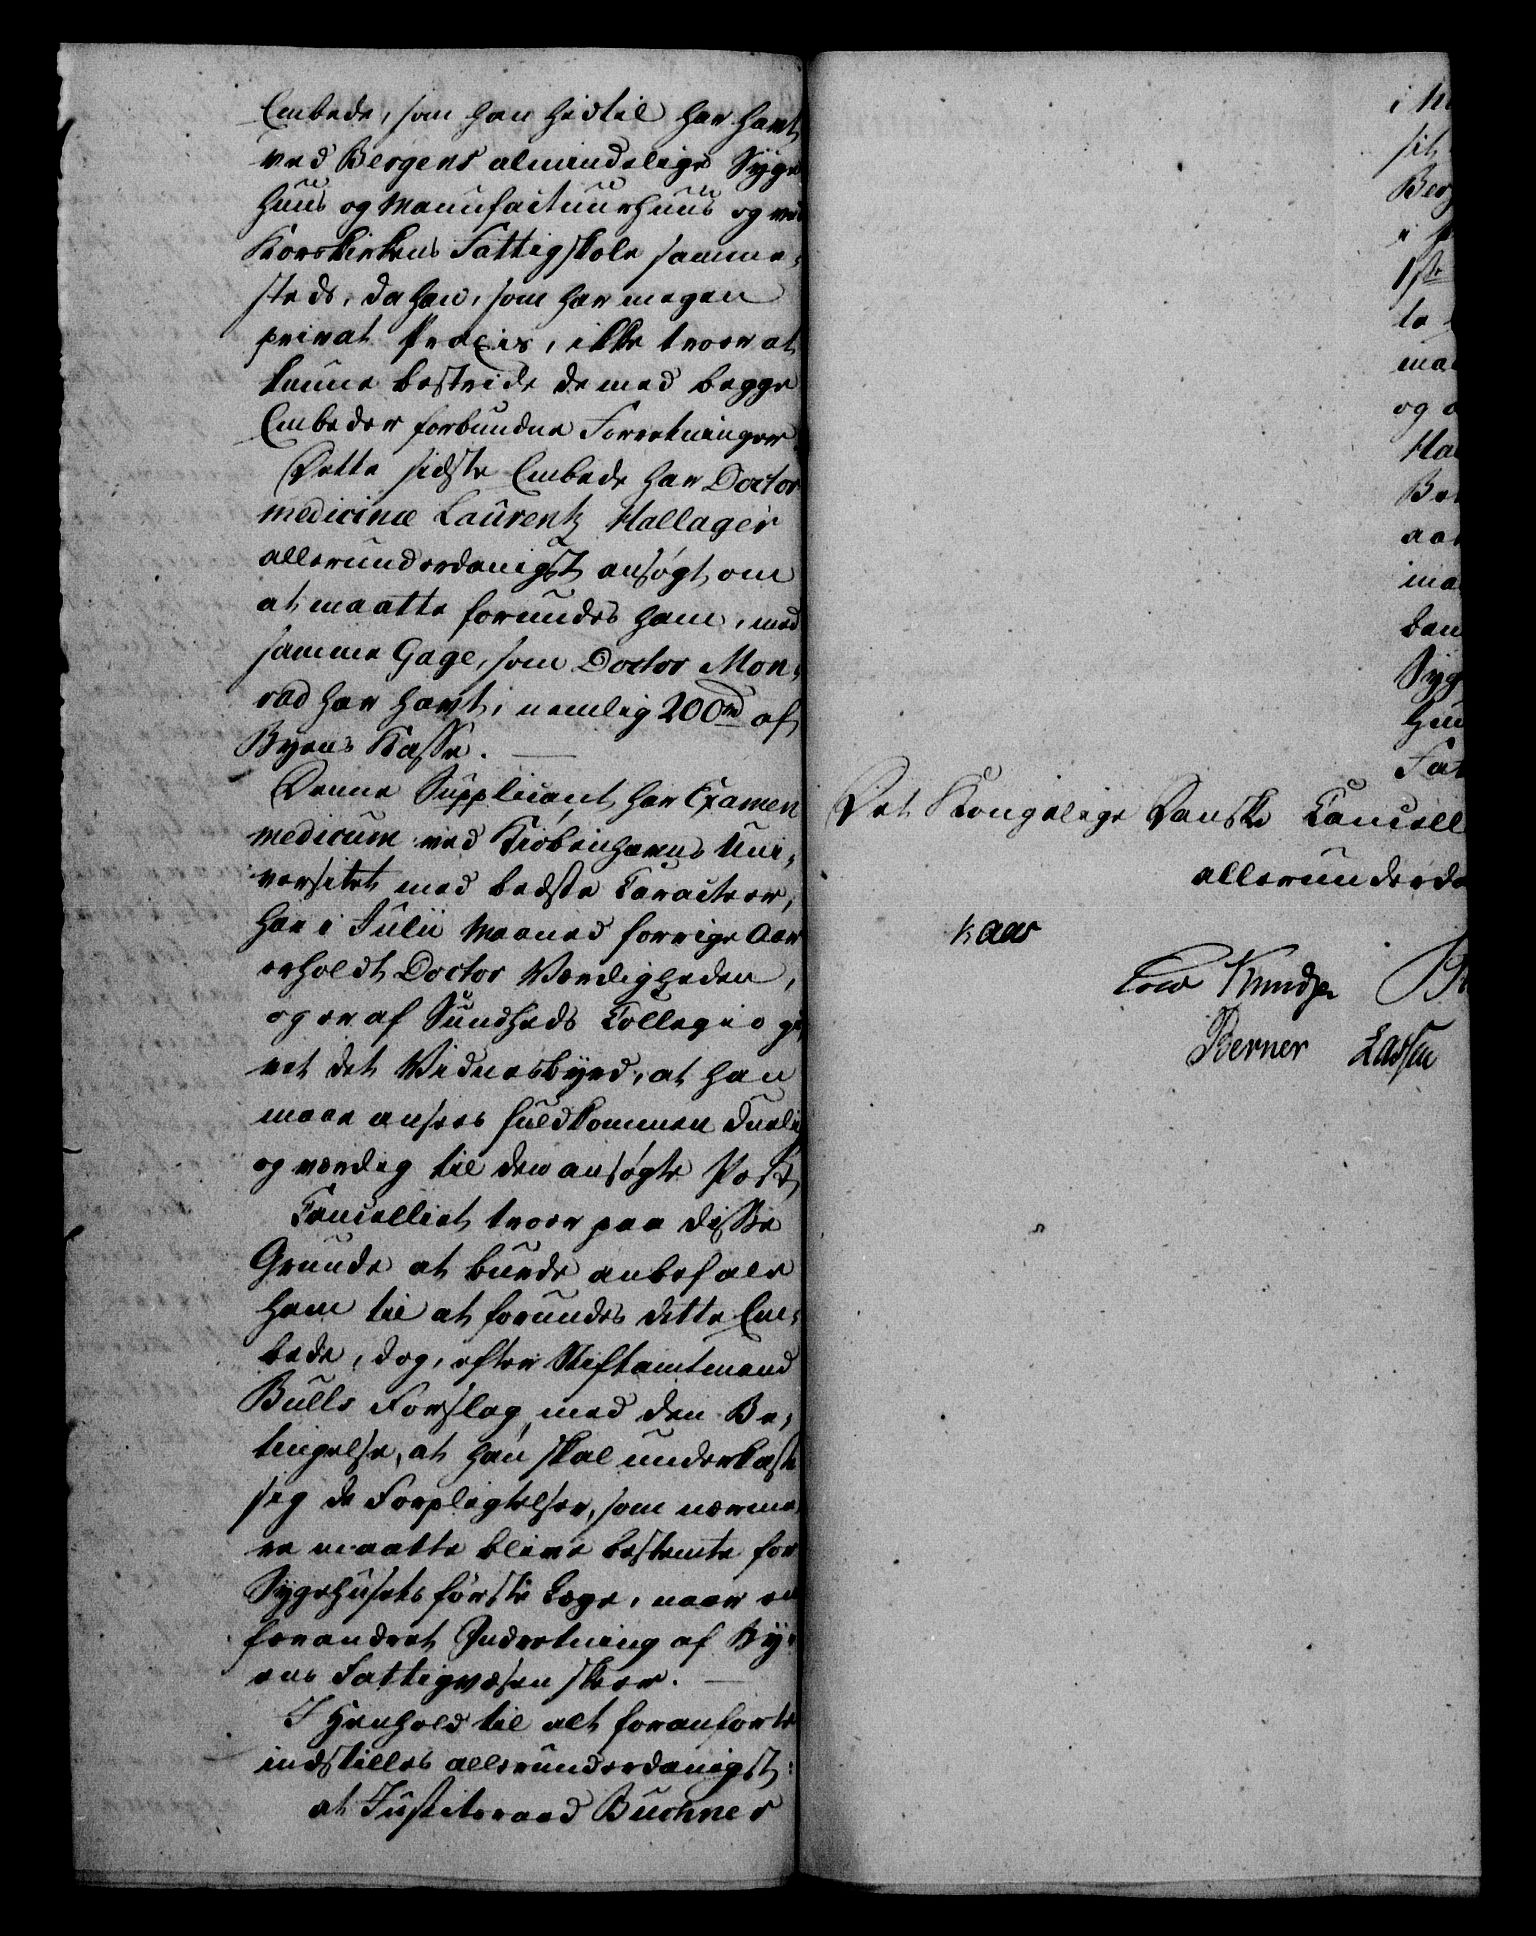 Embede, som han hidtil har havt
ved Bergens almindelige Syge
huus og Manufactuurhuus og ved
Korskirkens Fattigskole samme-
steds, da han, som har megen
privat Praxis, ikke troer at
kunne bestride de med begge
Embeder forbundne Forretninger
Dette sidste Embede har Doctor
medicinæ Laurentz Hallager
allerunderdanigst ansøgt om
at maatte forundes ham, med
samme Gage, som Doctor Mon-
rad har havt, nemlig 200 rd af
Byens Kasse.
Denne Supplicant har Examen
medicum ved Kiøbenhavns Uni-
versitet med bedste Caracteer,
har i Julii Maaned forrige Aar
erholdt Doctor Værdigheden,
og er af Sundheds Collegio gi-
vet det Vidnesbyrd, at han
maae ansees fuldkommen duelig
og værdig til den ansøgte Post
Cancelliet troer paa disse
Grunde at burde anbefale
ham til at forundes dette Em-
bede, dog, efter Stiftamtmand
Bulls Forslag, med den Be-
tingelse, at han skal underkaste
sig de Forpligtelser, som nærme-
re maatte blive bestemte for
Sygehusets første Læge, naar en
forandret Indretning af By-
ens Fattigvæsen skeer.
I Henhold til alt foranførte
indstilles allerunderdanigst:
at Justitsraad Buchner
i
sit
Berg
1ste
og
Syg
huu
Fat
Det Kongelige Danske Cancell
allerunderda
Kaas
Knudsen
Berner Lassen